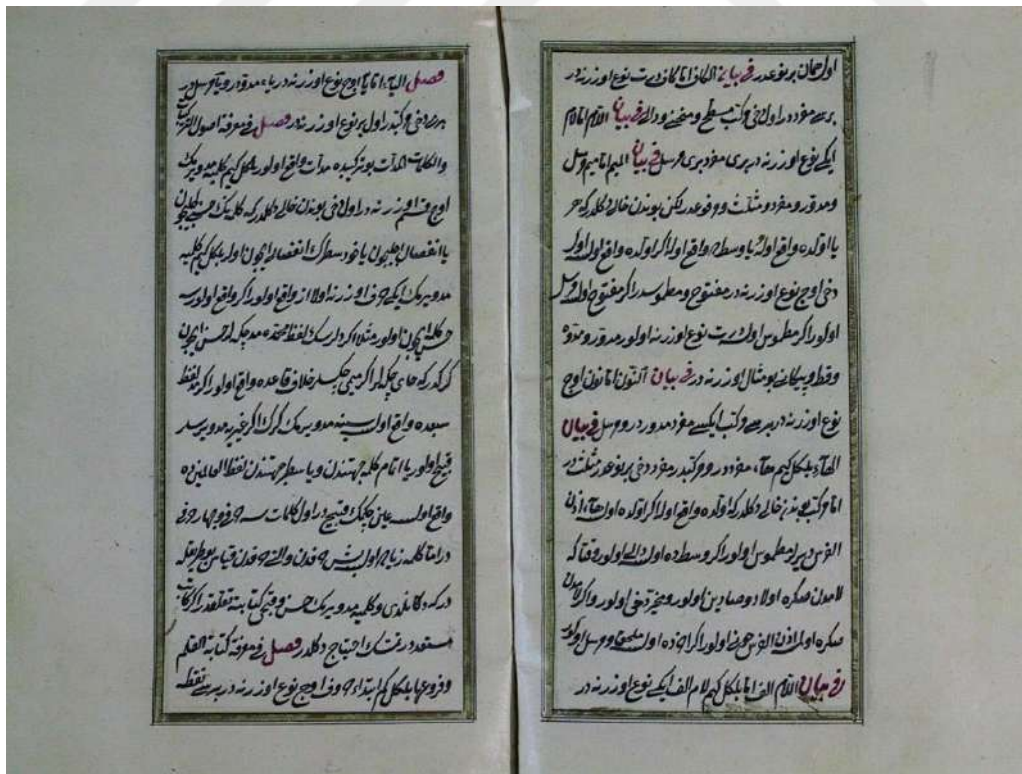 اول همان بر نوعدر فی بیان الکاف اما کاف درت نوع اوزرنه در
بری مفرددر اول دخی مرکب مسطح و منحنی و دالی فی بیان اللام اما لام
ایکی نوع اوزرنه در بری مفرد بری مرسل فی بیان المیم اما میم مرسل
و مدور و مفرد و مثلث و وقوعدر لکن بوندن خالی دکلدر که
یا اولده واقع اولا یا وسطده واقع اولا اکر اولده واقع اولسه اول
دخی اوج نوع اوزرنه در مفتوح و مطموسدر اکر مفتوح اولسه مرسل
اولور اکر مطموس اولسه درت نوع اوزرنه اولور مدور و
و قط و پیکانی بو مثال اوزرنه در فی بیان النون اما نون اوج
نوع اوزرنه در بریسی مرکب ایکیسی مفرد مدوردر و مرسل فی بیان
الهاء بلکل کیم هاء مفرددر و مرکبدر مفرد دخی بر نوعدر مثلث در
اما مرکب بوندن خالی دکلدر که اولده واقع اولا اکر اولده اولسه هاء اذن
الفرس دیرلر مطموس اولور اکر وسطده اولسه دالی اولور وقتا که
لامدن صکره اولا و صادین اولور و منجزة دخی اولور و اکر لامدن
صکره اولمسه اذن الفرس جوفی اولور اکر اخرده اولسه ملحق و مرسل اولور
فی بیان اللام الف اما بلکل کیم لام الف ایکی نوع اوزرنه در
فصل الیاء اما یا اوج نوع اوزرنه در یاء مدوّر و یا مرسلدر
بری دخی مرکبدر اول بر نوع اوزرنه در فصل فی معرفة اصول الترکیبات
والکلمات المدات بو ترکیبده مدات واقع اولور بلکل کیم کلمیه مد ویرمک
اوج قسم اوزرنه در اول دخی بوندن خالی دکلدر که کلمه نک حسنی ایچون
یا انفصال ایچون یاخود سطرک انفصالی ایچون اولور بلکل کیم کلمیه
مد ویرمک ایکی حرف اوزرنه اولا از واقع اولور اکر واقع اولورسه
حسن کلمه ایچون اولور مثلا اکر دلرسک لفظ محمده مد چکه‌سن حسن ایچون
کرکدر که حای چکه‌لر اکر میمی چکسه‌لر خلاف قاعده واقع اولور اکر مد لفظ
سعده واقع اولسه سینه مد ویرمک کرک اکر غیریه مد ویرسه‌لر
قبیح اولور یا اتمام کلمه جهتندن و یا سطر جهتندن لفظ العالمینده
واقع اولسه عینی چکمک قبیحدر اول کلمات سه حرفی و چهار حرفی
در اما کلمه زیاده اولسه بش حرفدن و التی حرفدن قیاس
در که و کلمیه مد ویرمک حسن و قبحی کتابته تعلقدر اکر کاتب
مستعددر احتیاج دکلدر فصل فی معرفة کتابة القلم
و فروعها بلکل کیم ابتداء حروف اوج نوع اوزرنه در بریسی نقطه